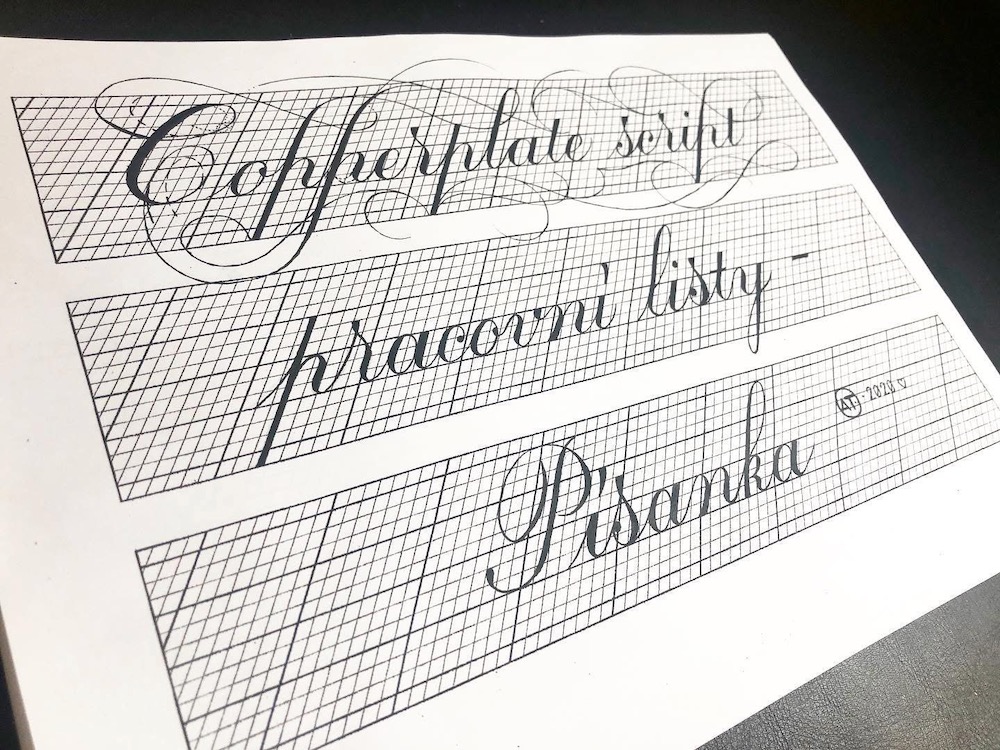 Copperplate script
pracovní listy -
Písanka
AT. - 2020 ♡